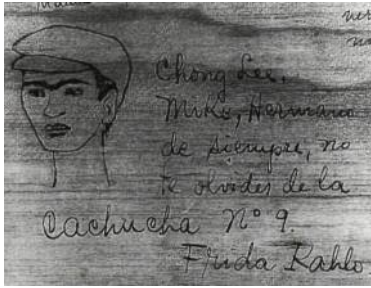 Chong Lee,
Mike, Hermano
de siempre, no
te olvides de la
Cachucha Nº 9.
Frida Kahlo